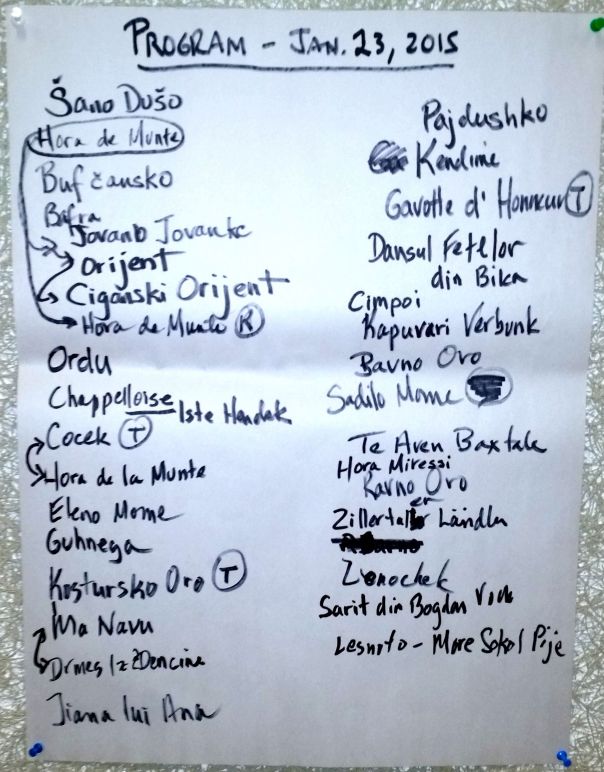 PROGRAM - JAN. 23, 2015
Šano Dušo
Hora de Munte
Bufčansko
Bafra
Jovano Jovanke
Orijent
Ciganski Orijent
Hora de Munte R
Ordu
Chappelloise
Iste Hendek
Cocek T
Hora de la Munte
Eleno Mome
Guhnega
Kostursko Oro T
Ma Navu
Drmeš Iz Ždencine
Jiana lui Ana
Pajdushko
Kendime
Gavotte d' Honneur T
Dansul Fetelor
din Bika
Cimpoi
Kapuvari Verbunk
Bavno Oro
Sadilo Mome
Te Aven Baxtale
Hora Miresei
Ravno Oro
Zillertaler Ländler
Sarit din Bogdan Voda
Lesnoto - More Sokol Pije